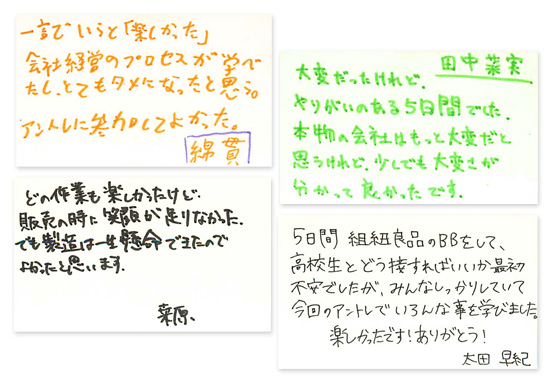 一言でいうと「楽しかった」
会社経営のプロセスが学べ
たし、とてもタメになったと思う。
アントレに参加してよかった。
綿貫
田中菜実
大変だったけれど、
やりがいのある5日間でした。
本物の会社はもっと大変だと
思うけれど、少しでも大変さが
分かって良かったです。
どの作業も楽しかったけど、
販売の時に笑顔が足りなかった。
でも製造は一生懸命できたので
よかったと思います。
菜原、
5日間 組紐良品のBBをして、
高校生とどう接すればいいか最初
不安でしたが、みんなしっかりしていて
今回のアントレでいろんな事を学びました。
楽しかったです!ありがとう!
太田 早紀